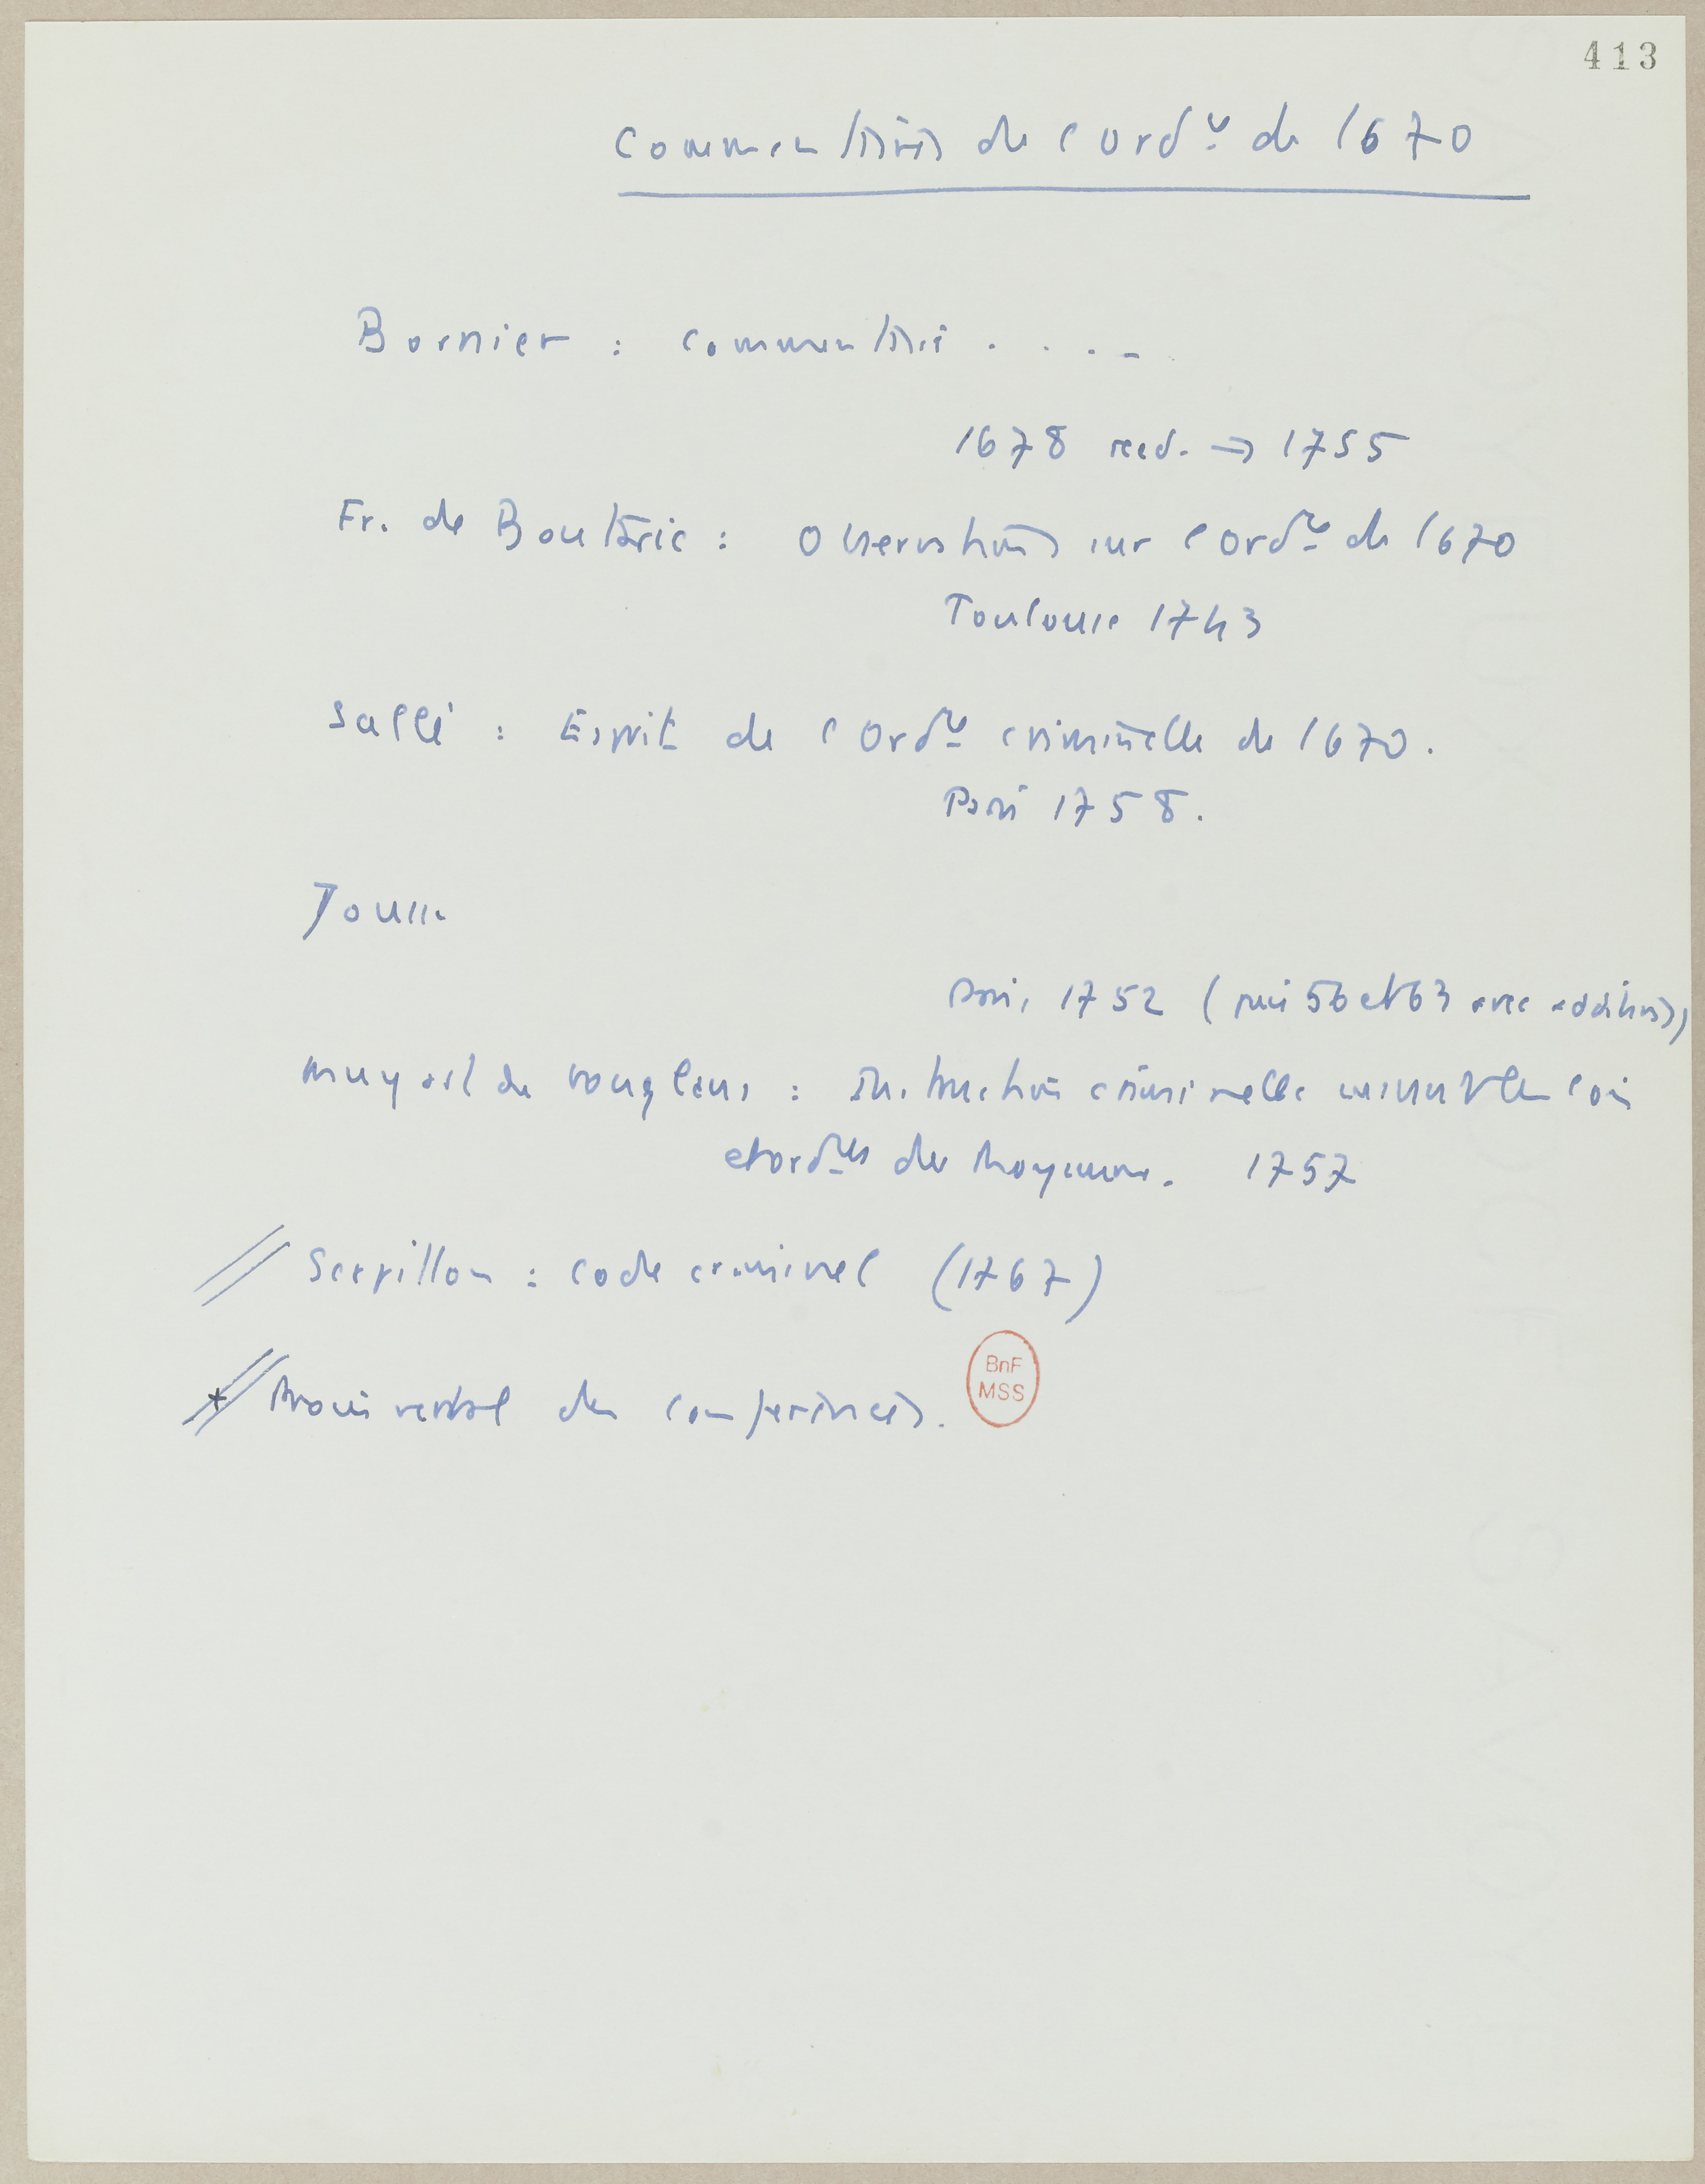 413
Commentaires de l'Ordce de 1670
Bornier : commentaire . . . .
1678 reed. => 1755
Fr. de Boutaric : Observations sur l'Ordce de 1670
Toulouse 1743
Sallé : Esprit de l'Ordce criminelle de 1670.
Paris 1758.
Jousse
Paris, 1752 (puis 56 et 63 avec additions)
Muyart de Vouglans : Instruction criminelle suivant les lois
et ordces du Royaume. 1757
Serpillon : Code criminel (1767)
* Procès verbal des conférences.
BnF
MSS